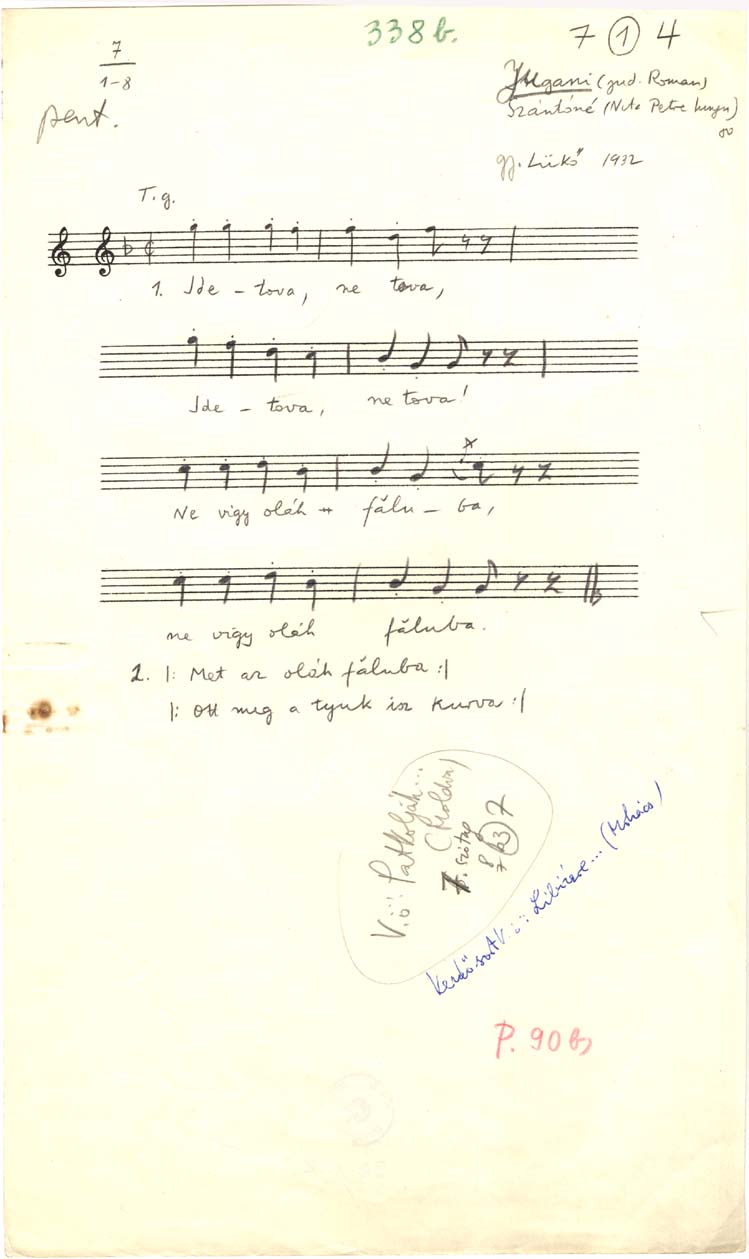 338b.
7 1 4
7
1-8
pent.
Jugani (jud. Roman)
Szántóné (Nuta Petre
gy. Lükő 1932
T. g.
1. Ide - tova, ne tova,
Ide - tova, ne tova!
Ne vigy oláh fălu - ba,
ne vigy oláh făluba.
2. |: Met az oláh făluba :|
|: Ott meg a tyuk isz kurva :|
V.ö: Patkolják...
(Moldva)
7. szótag
8
7 (23) 7
V.ö: ... (Mohács)
P. 90 b)